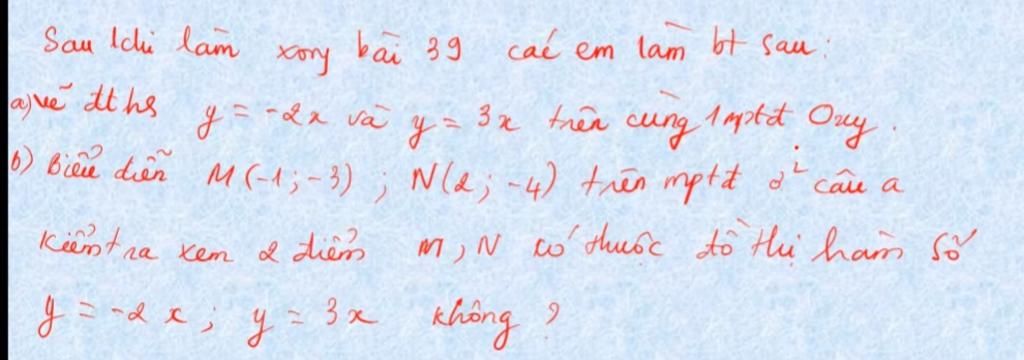 Sau khi làm xong bài 39 các em làm bt sau:
a) vẽ đths y = -2x và y = 3x trên cùng 1 mptđ Oxy.
b) Biểu diễn M(-1; -3) ; N(2; -4) trên mptđ ở câu a
Kiểm tra xem 2 điểm M, N có thuộc đồ thị hàm số
y = -2x; y = 3x không ?